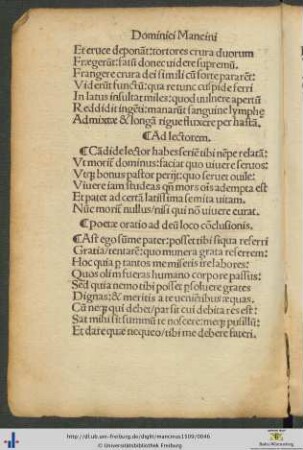 Dominici Mancini
Et cruce deponãt: tortores crura duorum
Frægerũt: fatũ donec uidere supremũ.
Frangere crura dei simili cũ sorte pararẽt:
Viderũt functũ: qua re tunc cuspide ferri
In latus insultat miles: quod uulnere apertũ
Reddidit ingẽti: manarũt sanguine lymphę
Admixtæ & longã rigue fluxere per hastã.
¶Ad lectorem.
¶Cãdide lector habes seriẽ tibi nẽpe relatã:
Vt moriẽ dominus: faciat quo uiuere seruos:
Vtqꝫ bonus pastor perijt: quo seruet ouile:
Viuere iam studeas qñ mors oĩs adempta est
Et patet ad certã latissima semita uitam.
Nũc moriẽ nullus/nisi qui nõ uiuere curat.
¶poetæ oratio ad deũ loco cõclusionis.
¶Ast ego sũme pater: posset tibi siqua referri
Gratia/tentarẽ: quo munera grata referrem:
Hoc quia ꝑ tantos me miseris ire labores:
Quos olim fueras humano corpore passus:
Sed quia nemo tibi posset ꝑsoluere grates
Dignas: & meritis a te ueniẽtibus æquas.
Cũ neqꝫ qui debet/par sit cui debita res est:
Sat mihi sit summũ te noscere: meqꝫ pusillũ:
Et dare quæ nequeo/tibi me debere fateri.
http://dl.ub.uni-freiburg.de/diglit/mancinus1509/0046
© Universitätsbibliothek Freiburg
Baden-Württemberg